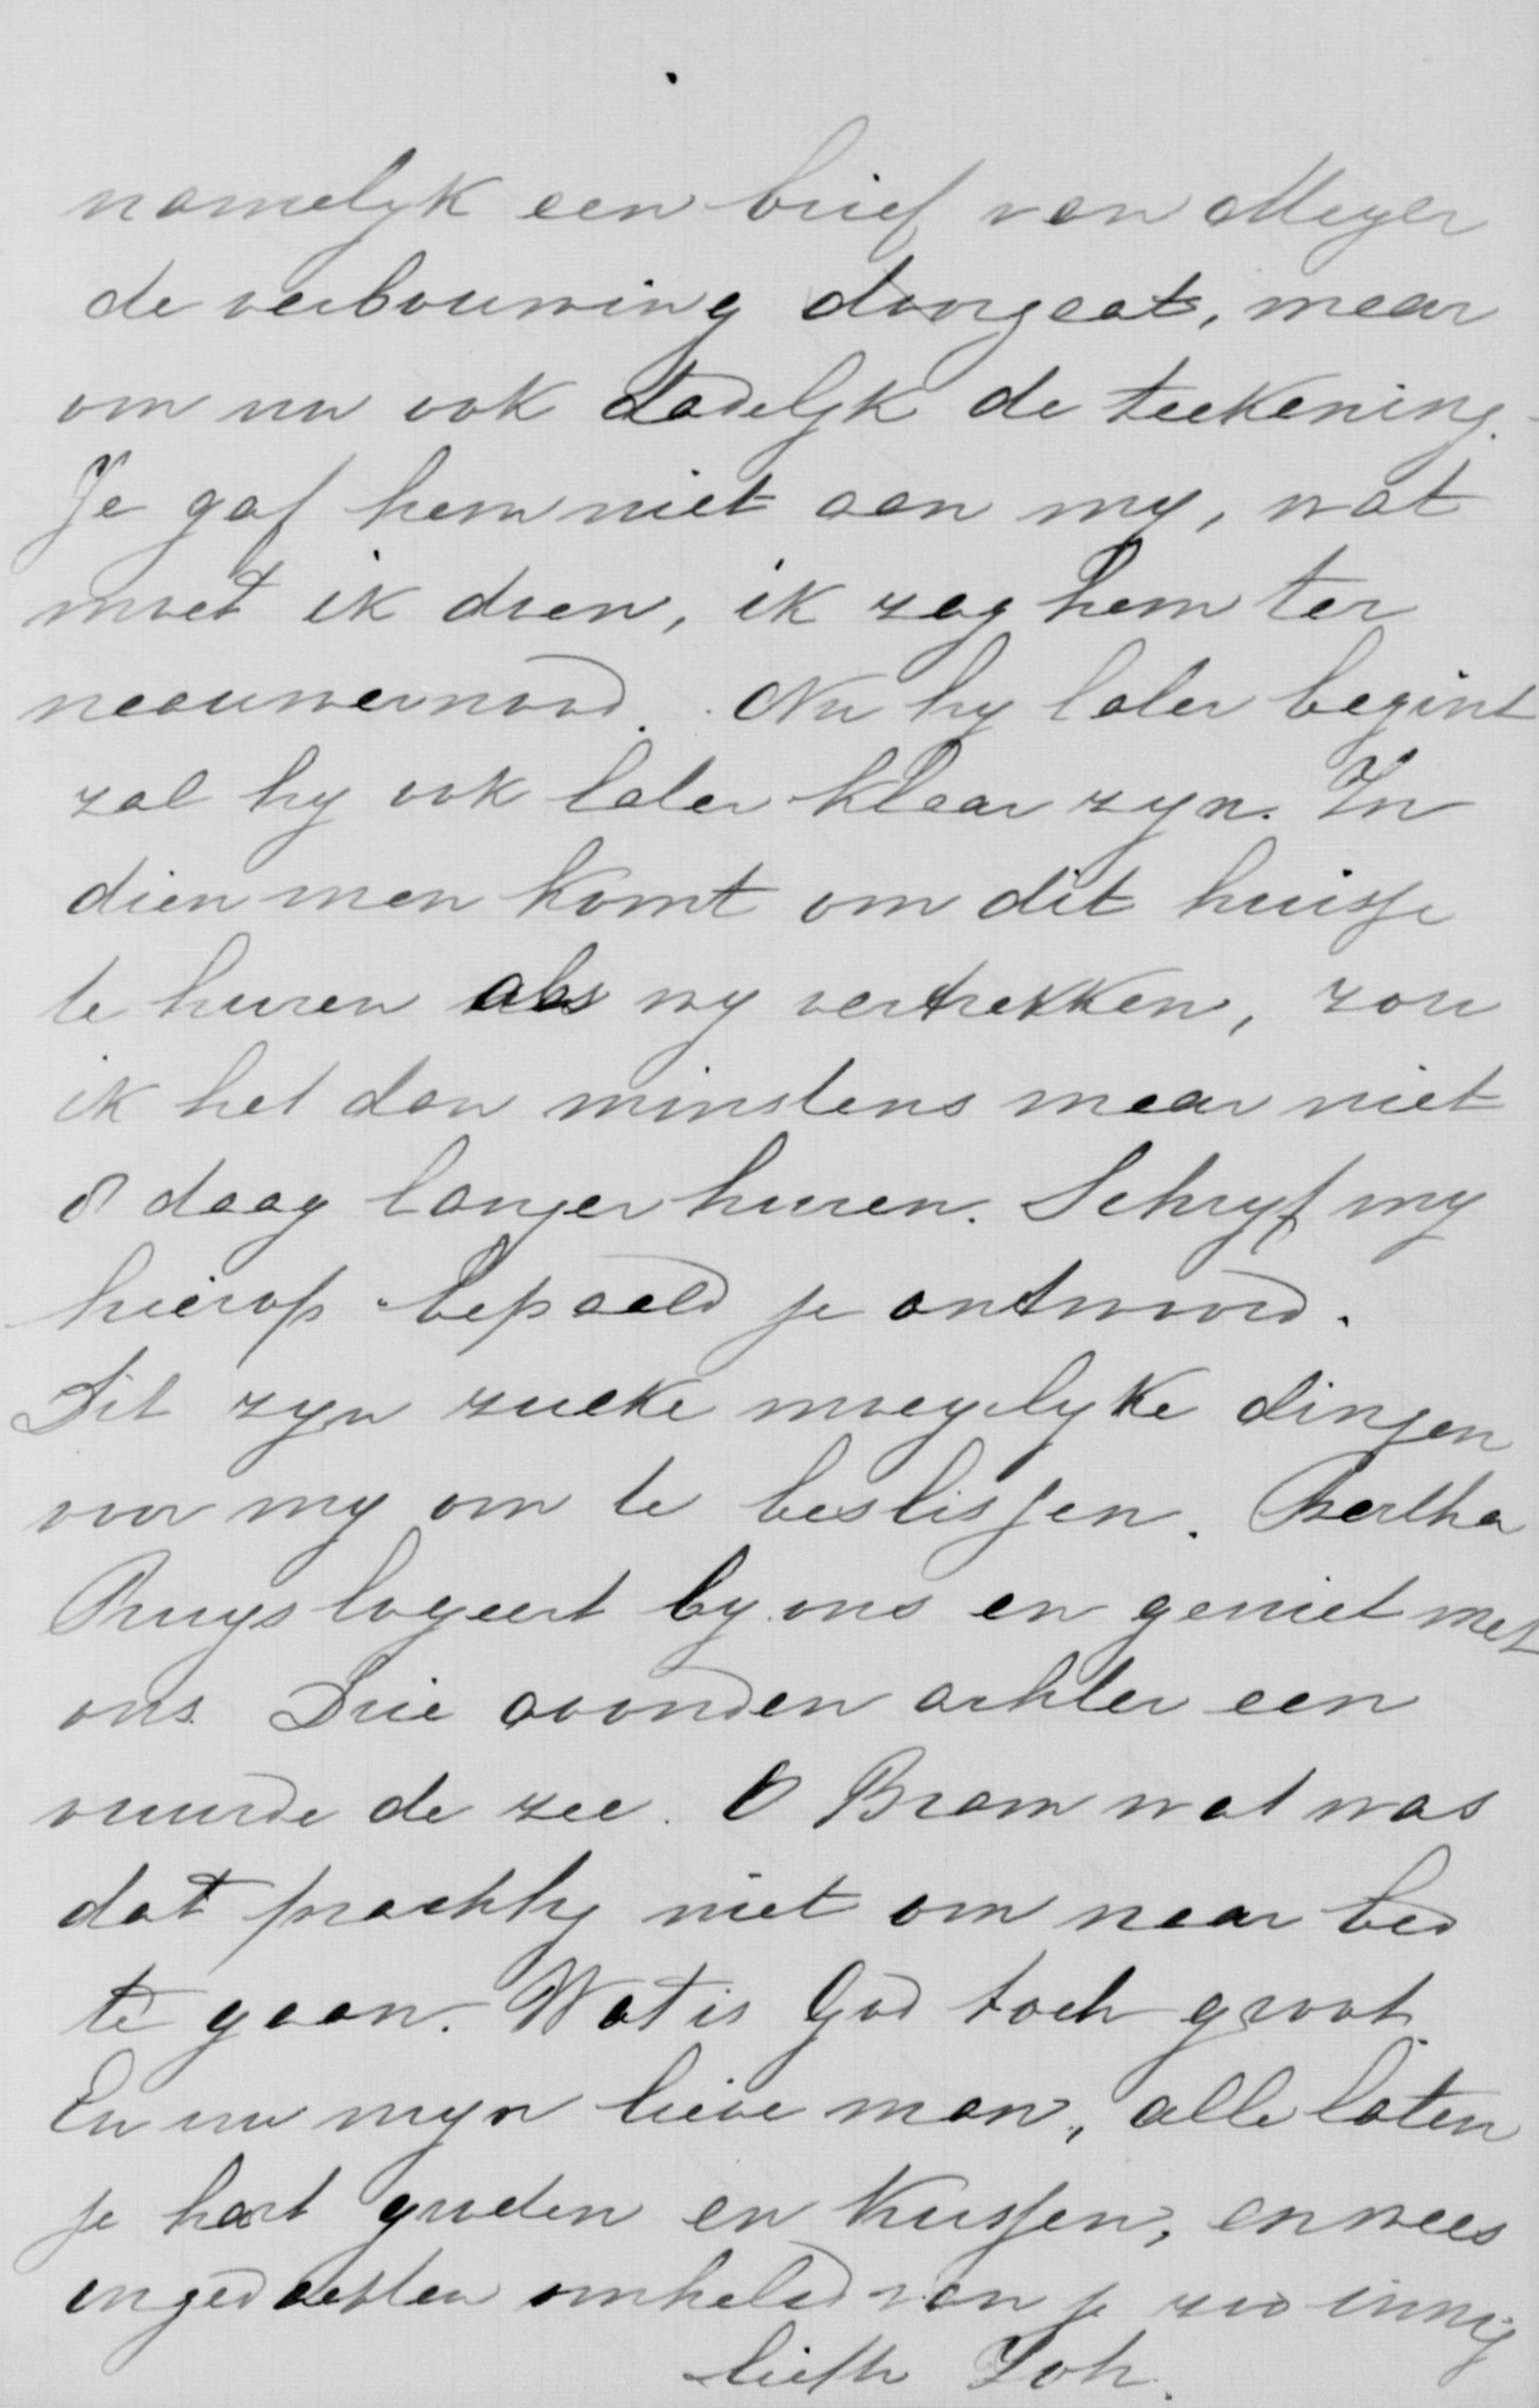 namelyk een brief van Meyer
de verbouwing doorgaat, maar
om nu ook dadelyk de teekening.
Je gaf hem niet aan my, wat
moet ik doen, ik zag hem ter
neouwernood. Nu hy later begint
zal hy ook later klaar zyn. In
dien men komt om dit huisje
te huren als wy vertrekken, zou
ik het dan minstens maar niet
8 daag langer huren. Schryf my
hierop bepaald je antwoord.
Dit zyn zulke moeyelyke dingen
voor my om te beslissen. Bertha
Ruys logeert by ons en geniet met
ons. Drie avonden achter een
vuurde de zee. O Bram wat was
dat prachtig niet om naar bed
te gaan. Wat is God toch groot.
En nu myn lieve man, alle laten
je hart groeten en kussen, en wees
in gedachten omhelsd van je zoo innig
liefh Joh.